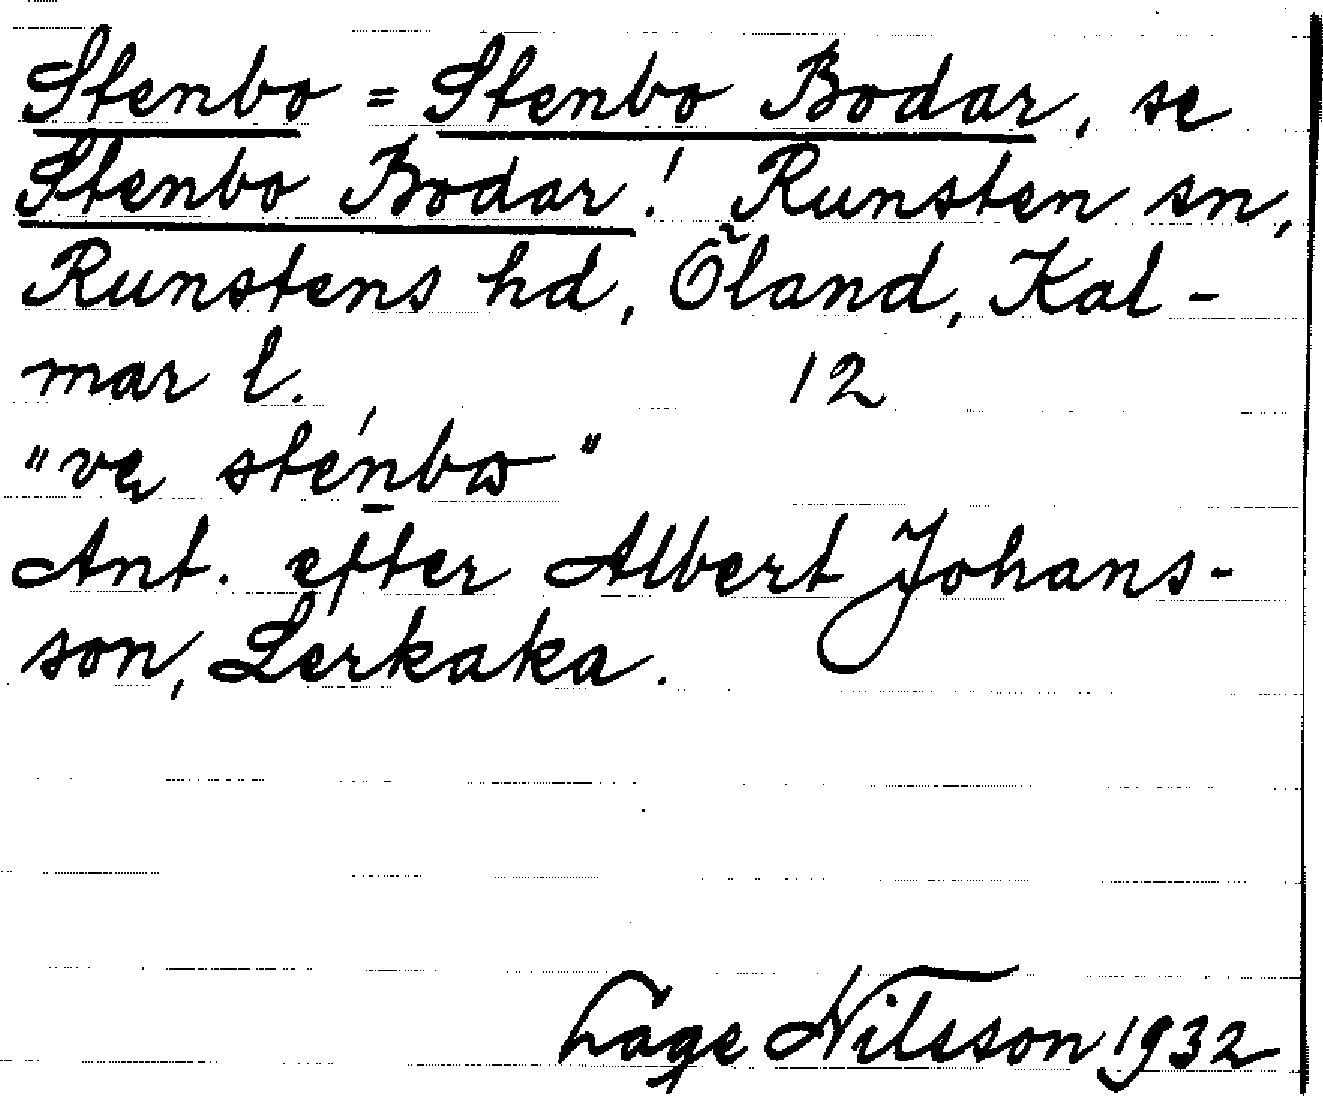 Stenbo = Stenbo Bodar, se
Stenbo Bodar! Runsten sn,
Runstens hd, Öland, Kal-
mar l. 12
"vę sténbω"
Ant. efter Albert Johans-
son, Lerkaka.
Lage Nilsson 1932